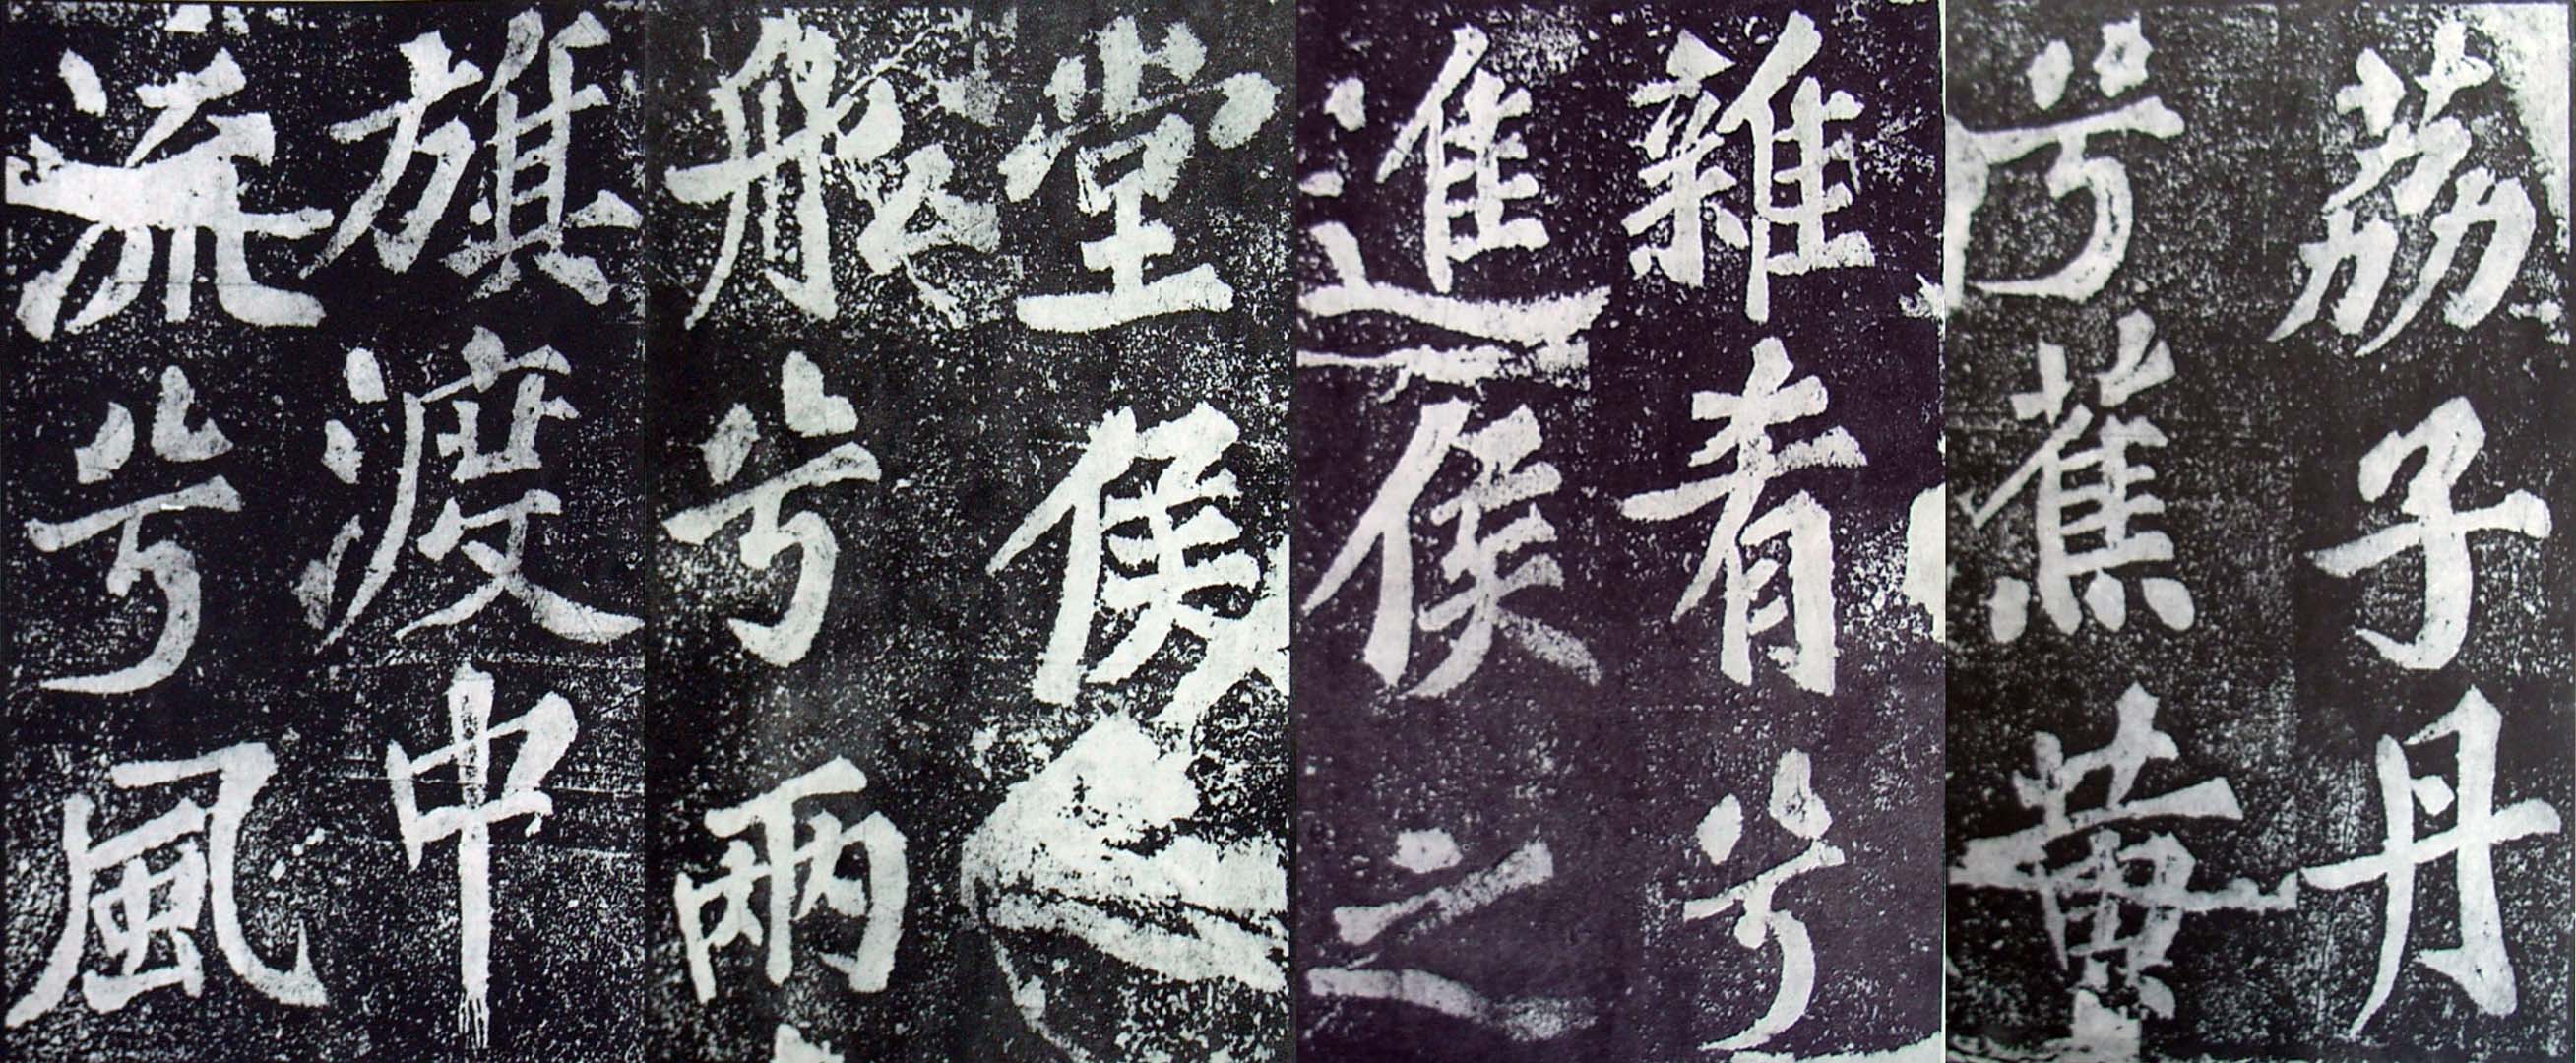 荔子丹
兮蕉黃
雜肴兮
進侯之
堂侯
船兮兩
旗渡中
流兮風